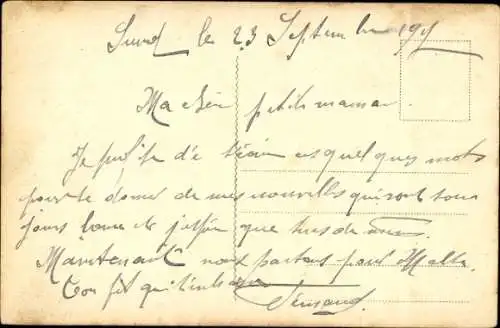 le 23 Septembre 191
Ma chère petite maman.
Je profite d'écrire ces quelques mots
pour te donner de mes nouvelles qui sont tou
jours bonne et j'espère que de même.
Maintenant nous partons pour Malte.
Ton fils qui t'embrasse
Fernand